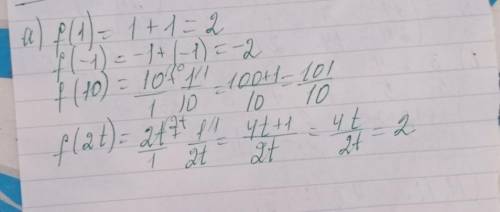 а) f(1) = 1+1 = 2
f(-1) = -1+(-1) = -2
f(10) = 10/1 ¹⁰ 1/10 ¹ = 100+1/10 = 101/10
f(2t) = 2t/1 1/2t ¹ = 4t+1/2t = 4t/2t = 2